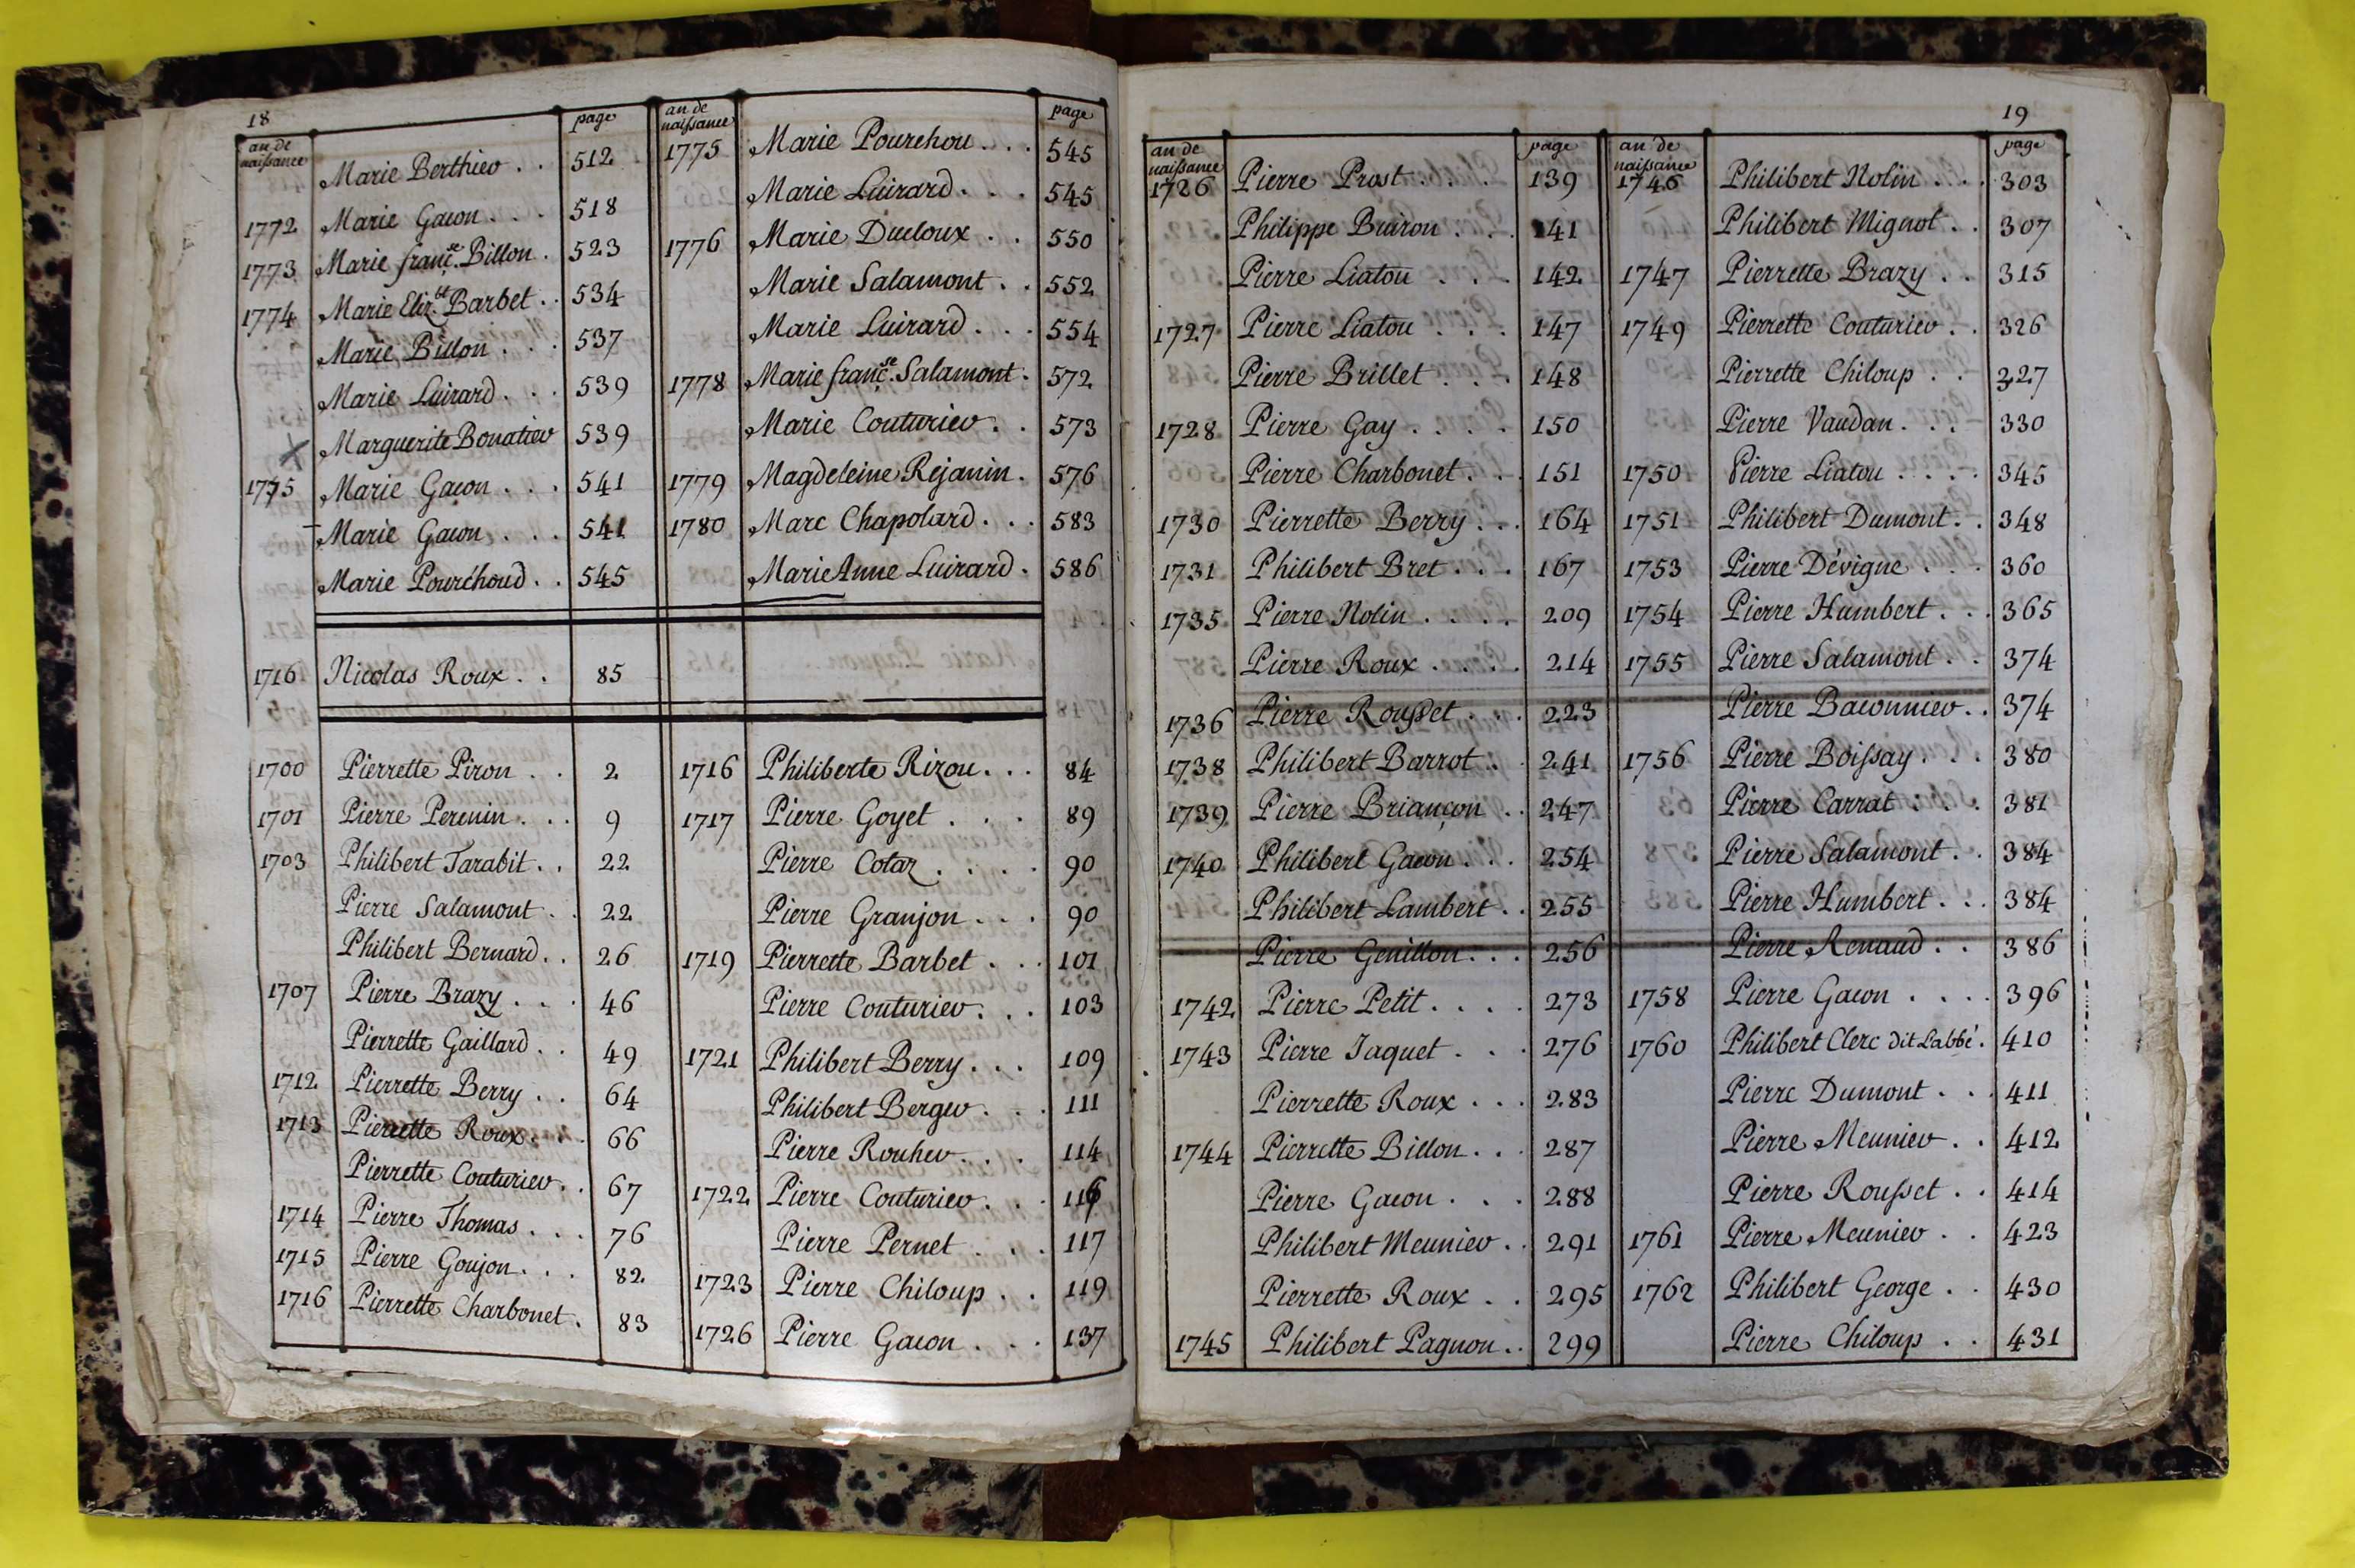 18
an de naissance page
Marie Berthier . . 512
1772 Marie Gacon . . . 518
1773 Marie franç.se Billon . 523
1774 Marie Eliz.bt Barbet . . 534
Marie Billon . . . 537
Marie Luirard . . . 539
Marguerite Bonatier 539
1775 Marie Gacon . . . 541
Marie Gacon . . . 541
Marie Pouréhoud . . 545
1716 Nicolas Roux . . 85
1700 Pierrette Piron . . 2
1701 Pierre Perenin . . . 9
1703 Philibert Tarabit . . 22
Pierre Salamont . . 22
Philibert Bernard . . 26
1707 Pierre Brazy . . . 46
Pierrette Gaillard . . 49
1712 Pierrette Berry . . 64
1713 Pierrette Roux . . . 66
Pierrette Couturier . . 67
1714 Pierre Thomas . . . 76
1715 Pierre Goujon . . . 82
1716 Pierrette Charbonet . 83
an de naissance page
1775 Marie Pourehou . . . 545
Marie Luirard . . . 545
1776 Marie Ducloux . . 550
Marie Salamont . . 552
Marie Luirard . . . 554
1778 Marie franç.se Salamont . 572
Marie Couturier . . 573
1779 Magdeleine Rejanin . 576
1780 Marc Chapolard . . . 583
Marie Anne Luirard . 586
1716 Philiberte Rizou . . . 84
1717 Pierre Goyet . . . 89
Pierre Cotaz . . . . 90
Pierre Granjon . . . 90
1719 Pierrette Barbet . . . 101
Pierre Couturier . . . 103
1721 Philibert Berry . . . 109
Philibert Berger . . . 111
Pierre Rouher . . . 114
1722 Pierre Couturier . . . 116
Pierre Pernet . . . 117
1723 Pierre Chiloup . . 119
1726 Pierre Gacon . . . 137
19
an de naissance page
1726 Pierre Prost . . . 139
Philippe Buiron . . . 141
Pierre Liatou . . . 142
1727 Pierre Liatou . . . 147
Pierre Brillet . . . 148
1728 Pierre Gay . . . . 150
Pierre Charbonet . . . 151
1730 Pierrette Berry . . . 164
1731 Philibert Bret . . . 167
1735 Pierre Nolin . . . . 209
Pierre Roux . . . . 214
1736 Pierre Rousset . . . 223
1738 Philibert Barrot . . 241
1739 Pierre Briançon . . 247
1740 Philibert Gacon . . . 254
Philibert Lambert . . 255
Pierre Genillon . . . 256
1742 Pierre Petit . . . . 273
1743 Pierre Jaquet . . . 276
Pierrette Roux . . . 283
1744 Pierrette Billon . . . 287
Pierre Gacon . . . 288
Philibert Meunier . . 291
Pierrette Roux . . 295
1745 Philibert Pagnon . . 299
an de naissance page
1746 Philibert Nolin . . . 303
Philibert Mignot . . 307
1747 Pierrette Brazy . . 315
1749 Pierrette Couturier . . 326
Pierrette Chiloup . . 327
Pierre Vaudan . . . 330
1750 Pierre Liatou . . . . 345
1751 Philibert Dumont . . 348
1753 Pierre Dévigne . . . 360
1754 Pierre Humbert . . . 365
1755 Pierre Salamont . . 374
Pierre Baconnier . . 374
1756 Pierre Boissay . . . 380
Pierre Carrat . . . 381
Pierre Salamont . . 384
Pierre Humbert . . . 384
Pierre Renaud . . 386
1758 Pierre Gacon . . . . 396
1760 Philibert Clerc dit Labbé . 410
Pierre Dumont . . . 411
Pierre Meunier . . 412
Pierre Rousset . . 414
1761 Pierre Meunier . . 423
1762 Philibert George . . 430
Pierre Chiloup . . 431